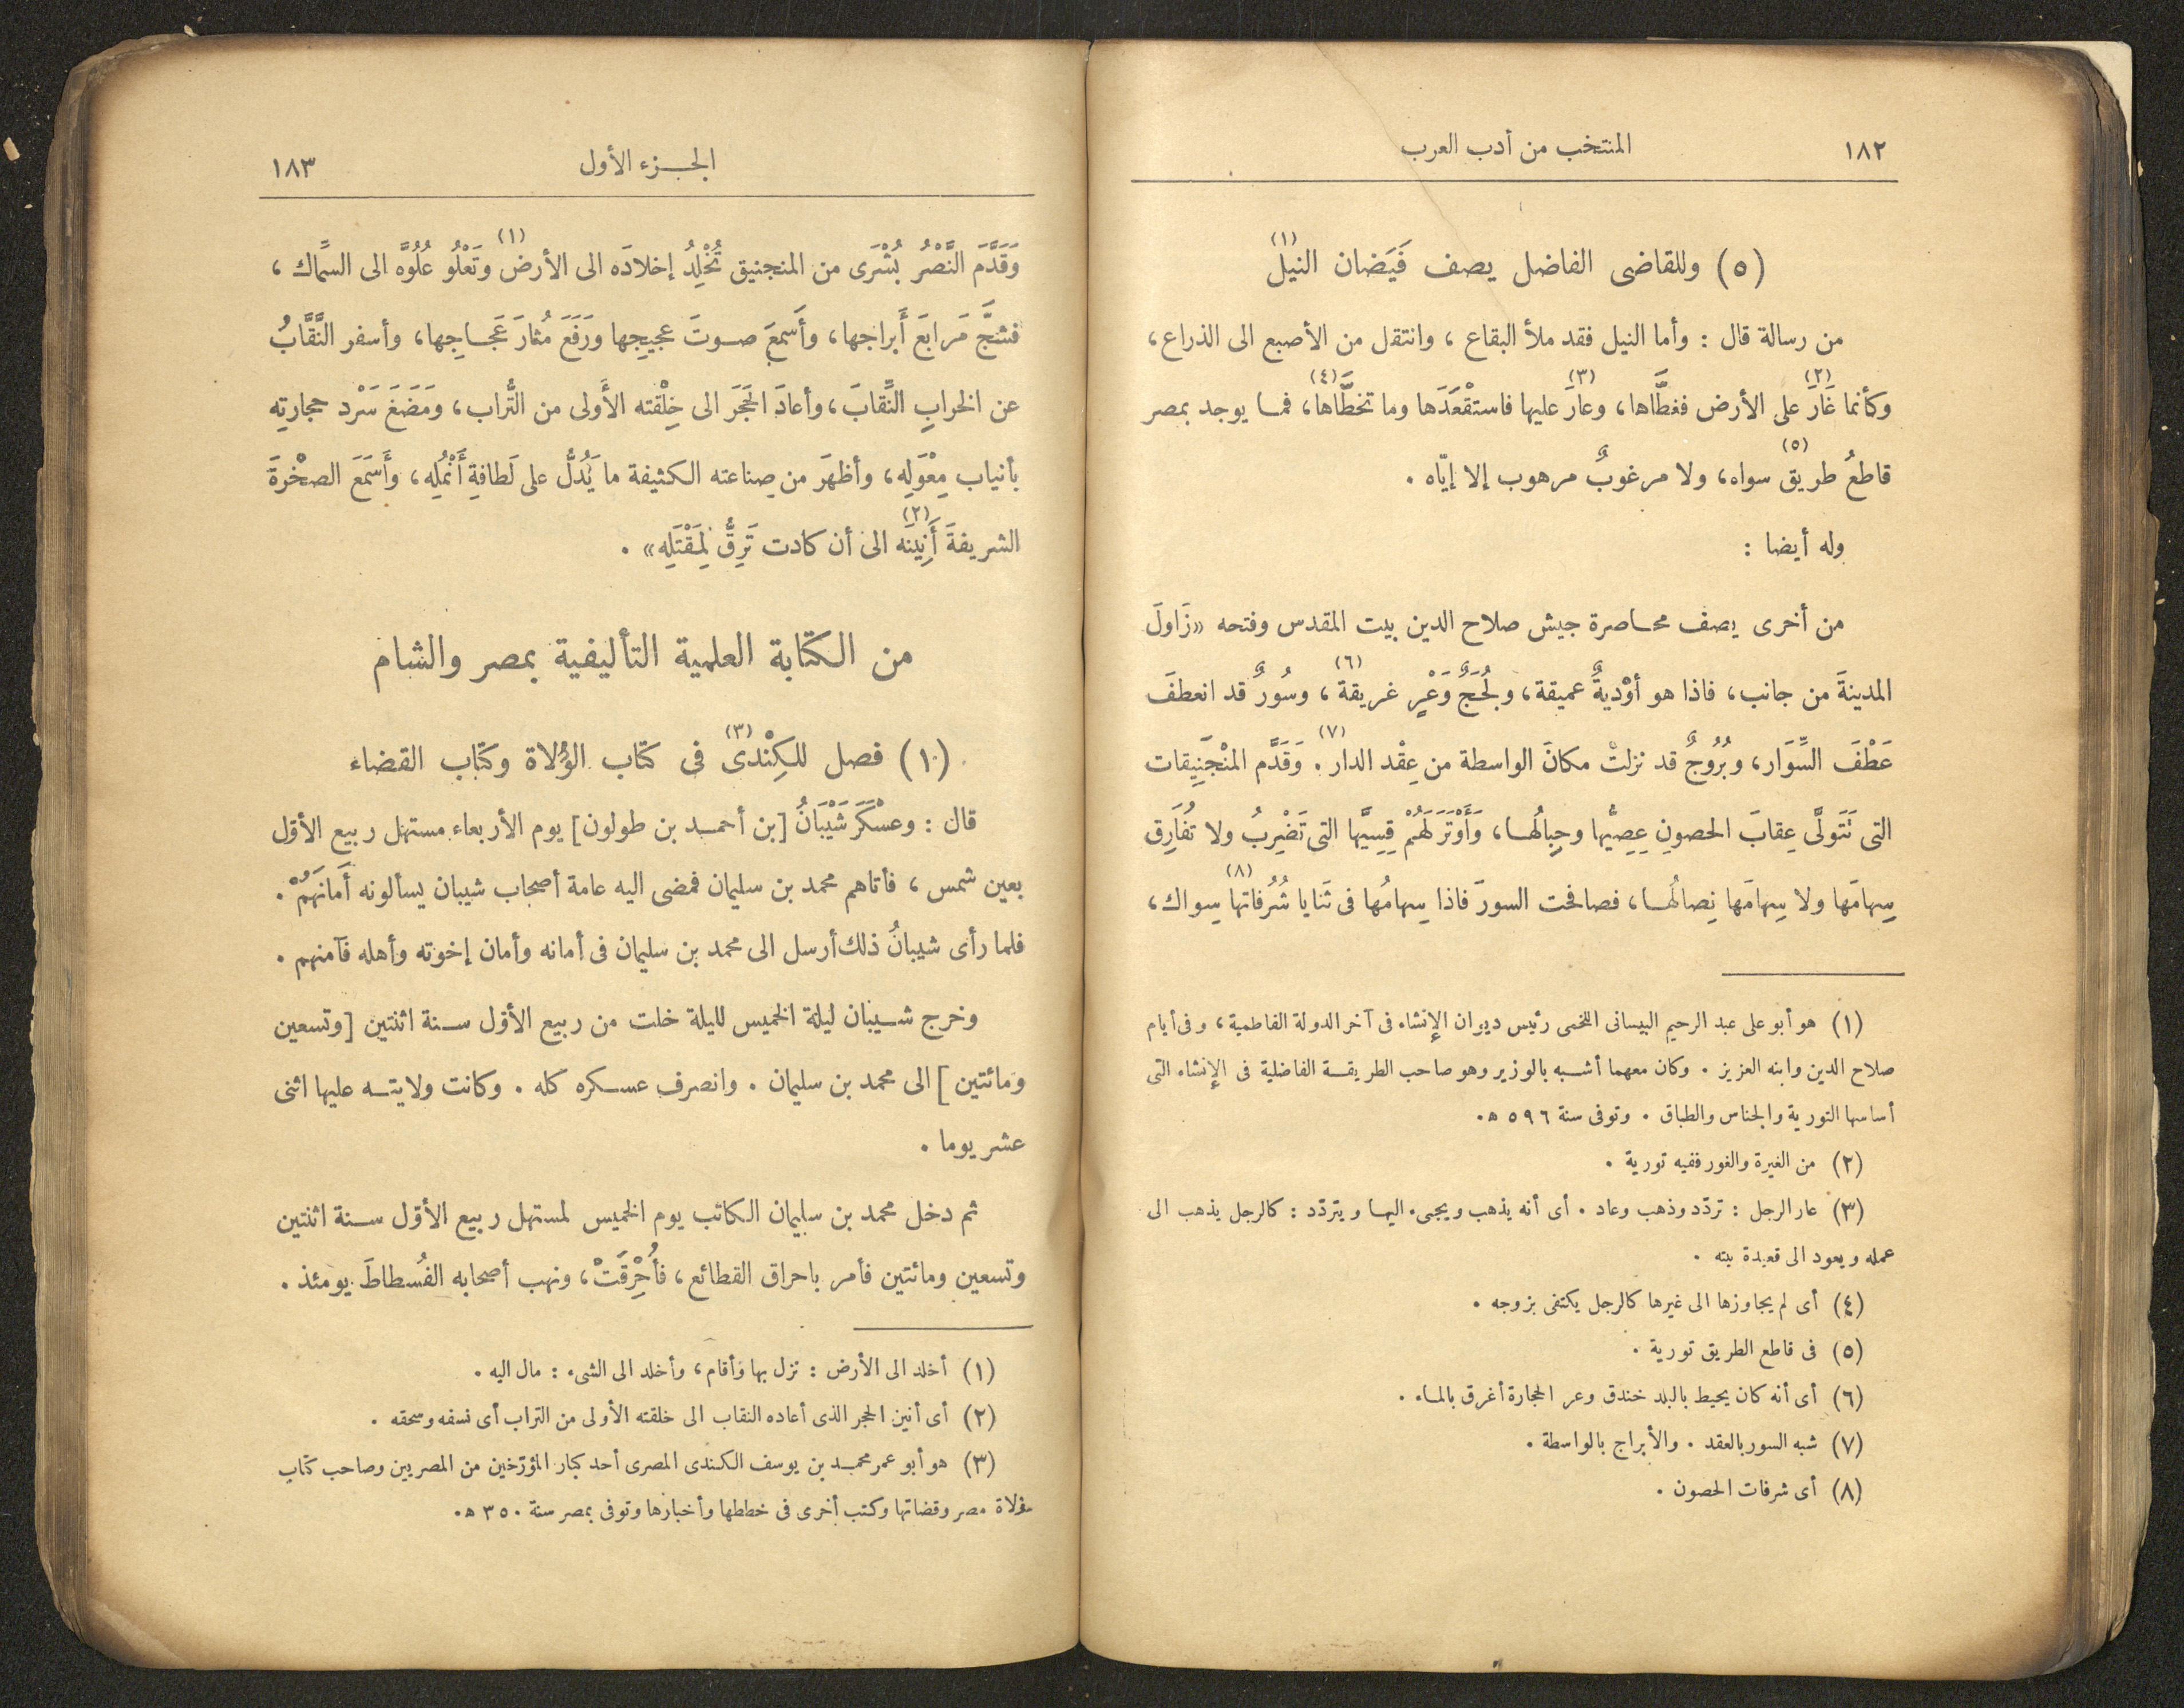 ١٨٢
المنتخب من أدب العرب
(٥) وللقاضى الفاضل يصف فَيَضان النيل (١)
من رسالة قال : وأما النيل فقد ملأ البقاع ، وانتقل من الأصبع الى الذراع ،
وكأنما غَارَ (٢) على الأرض فغطَّاها، وعارَ (٣) عليها فاستقْعَدَها وما تخطَّاها (٤)، فما يوجد بمصر
قاطعُ طريق (٥) سواه، ولا مرغوبٌ مرهوب إلا إيّاه .
وله أيضا :
من أخرى يصف محاصرة جيش صلاح الدين بيت المقدس وفتحه «زَاولَ
المدينةَ من جانب، فاذا هو أوْديةٌ عميقة، ولُجَجٌ وَعْرٍ غريقة (٦)، وسُورٌ قد انعطفَ
عَطْفَ السِّوَار، وبُرُوجٌ قد نزلتْ مكانَ الواسطة من عِقْد الدار (٧) . وَقَدَّم المنْجَنِيقات
التى تَتَولَّى عِقابَ الحصونِ عِصِيُّها وحِبالُها، وَأَوْتَرَ لَهُمْ قِسِيَّها التى تَضْرِبُ ولا تُفَارِق
سِهامَها ولا سِهامَها نِصالُها، فصافحت السورَ فاذا سِهامُها فى ثَنايا شُرُفاتها (٨) سِواك،
(١) هو أبو على عبد الرحيم البيسانى اللخمى رئيس ديوان الإنشاء فى آخر الدولة الفاطمية، وفى أيام
صلاح الدين وابنه العزيز . وكان معهما أشبه بالوزير وهو صاحب الطريقة الفاضلية فى الإنشاء التى
أساسها التورية والجناس والطباق . وتوفى سنة ٥٩٦ ه.
(٢) من الغيرة والغور ففيه تورية .
(٣) عار الرجل : تردّد وذهب وعاد . أى أنه يذهب ويجىء اليها ويتردّد : كالرجل يذهب الى
عمله ويعود الى قعيدة بيته .
(٤) أى لم يجاوزها الى غيرها كالرجل يكتفى بزوجه .
(٥) فى قاطع الطريق تورية .
(٦) أى أنه كان يحيط بالبلد خندق وعر الحجارة أغرق بالماء .
(٧) شبه السور بالعقد . والأبراج بالواسطة .
(٨) أى شرفات الحصون .
الجزء الأول
١٨٣
وَقَدَّمَ النَّصْرُ بُشْرَى من المنجنيق تُخْلِدُ إخلادَه الى الأرض (١) وتَعْلُو عُلُوَّه الى السِّماك ،
فشجَّ مَرابعَ أَبراجها، وأَسمعَ صوتَ عجيجِها ورَفَعَ مُثارَ عَجاجِها، وأسفر النَّقَّابُ
عن الخرابِ النِّقابَ، وأعادَ الحَجَرَ الى خِلْقته الأَولى من التُّراب، ومَضَغَ سَرْد حجارتِه
بأنياب مِعْوَلِه، وأظهرَ من صِناعته الكثيفة ما يَدُلُّ على لَطافةِ أَنْمُلِه، وأَسَمَعَ الصخْرةَ
الشريفةَ أَنِينَه (٢) الى أن كادت تَرِقُّ لِمَقْتَلِه» .
من الكتابة العلمية التأليفية بمصر والشام
(١) فصل للكِنْدى (٣) فى كتاب الوُلاة وكتاب القضاء
قال : وعسْكَرَ شَيْبَانُ [بن أحمد بن طولون] يوم الأربعاء مستهل ربيع الأوّل
بعين شمس ، فأتاهم محمد بن سليمان فمضى اليه عامة أصحاب شيبان يسألونه أَمانَهُمْ .
فلما رأى شيبانُ ذلك أرسل الى محمد بن سليمان فى أمانه وأمان إخوته وأهله فآمنهم .
وخرج شيبان ليلة الخميس لليلة خلت من ربيع الأوّل سنة اثنتين [وتسعين
ومائتين] الى محمد بن سليمان . وانصرف عسكره كله . وكانت ولايته عليها اثنى
عشر يوما .
ثم دخل محمد بن سليمان الكاتب يوم الخميس لمستهل ربيع الأوّل سنة اثنتين
وتسعين ومائتين فأمر باحراق القطائع، فأُحْرِقَتْ، ونهب أصحابه الفُسطاطَ يومئذ .
(١) أخلد الى الأرض : نزل بها وأقام، وأخلد الى الشىء : مال اليه .
(٢) أى أنين الحجر الذى أعاده النقاب الى خلقته الأولى من التراب أى نسفه وسحقه .
(٣) هو أبو عمر محمد بن يوسف الكندى المصرى أحد كبار المؤرّخين من المصريين وصاحب كتاب
ولاة مصر وقضاتها وكتب أخرى فى خططها وأخبارها وتوفى بمصر سنة ٣٥٠ ه.